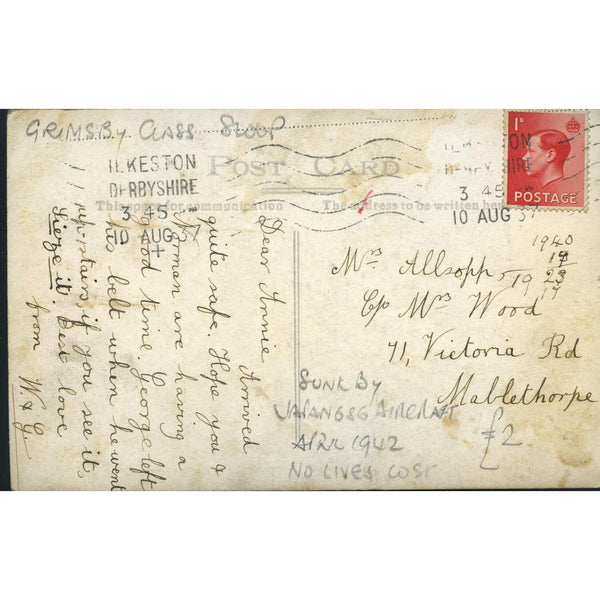 GRIMSBY CLASS SLOOP
ILKESTON
DERBYSHIRE
3 45
10 AUG 37
POST CARD
This space for communication
The address to be written here
SHIRE
3 45
10 AUG 37
1D
POSTAGE
Dear Annie Arrived
quite safe. Hope you &
Norman are having a
good time George left
his belt when he went
upstairs, if you see it,
Siege it. Best love
from W & G.
Mrs Allsopp,
C/o Mrs Wood
71, Victoria Rd
Mablethorpe
1940
19
19 23
17
SUNK BY
JAPANESE AIRCRAFT
APRIL 1942
NO LIVES LOST
£2